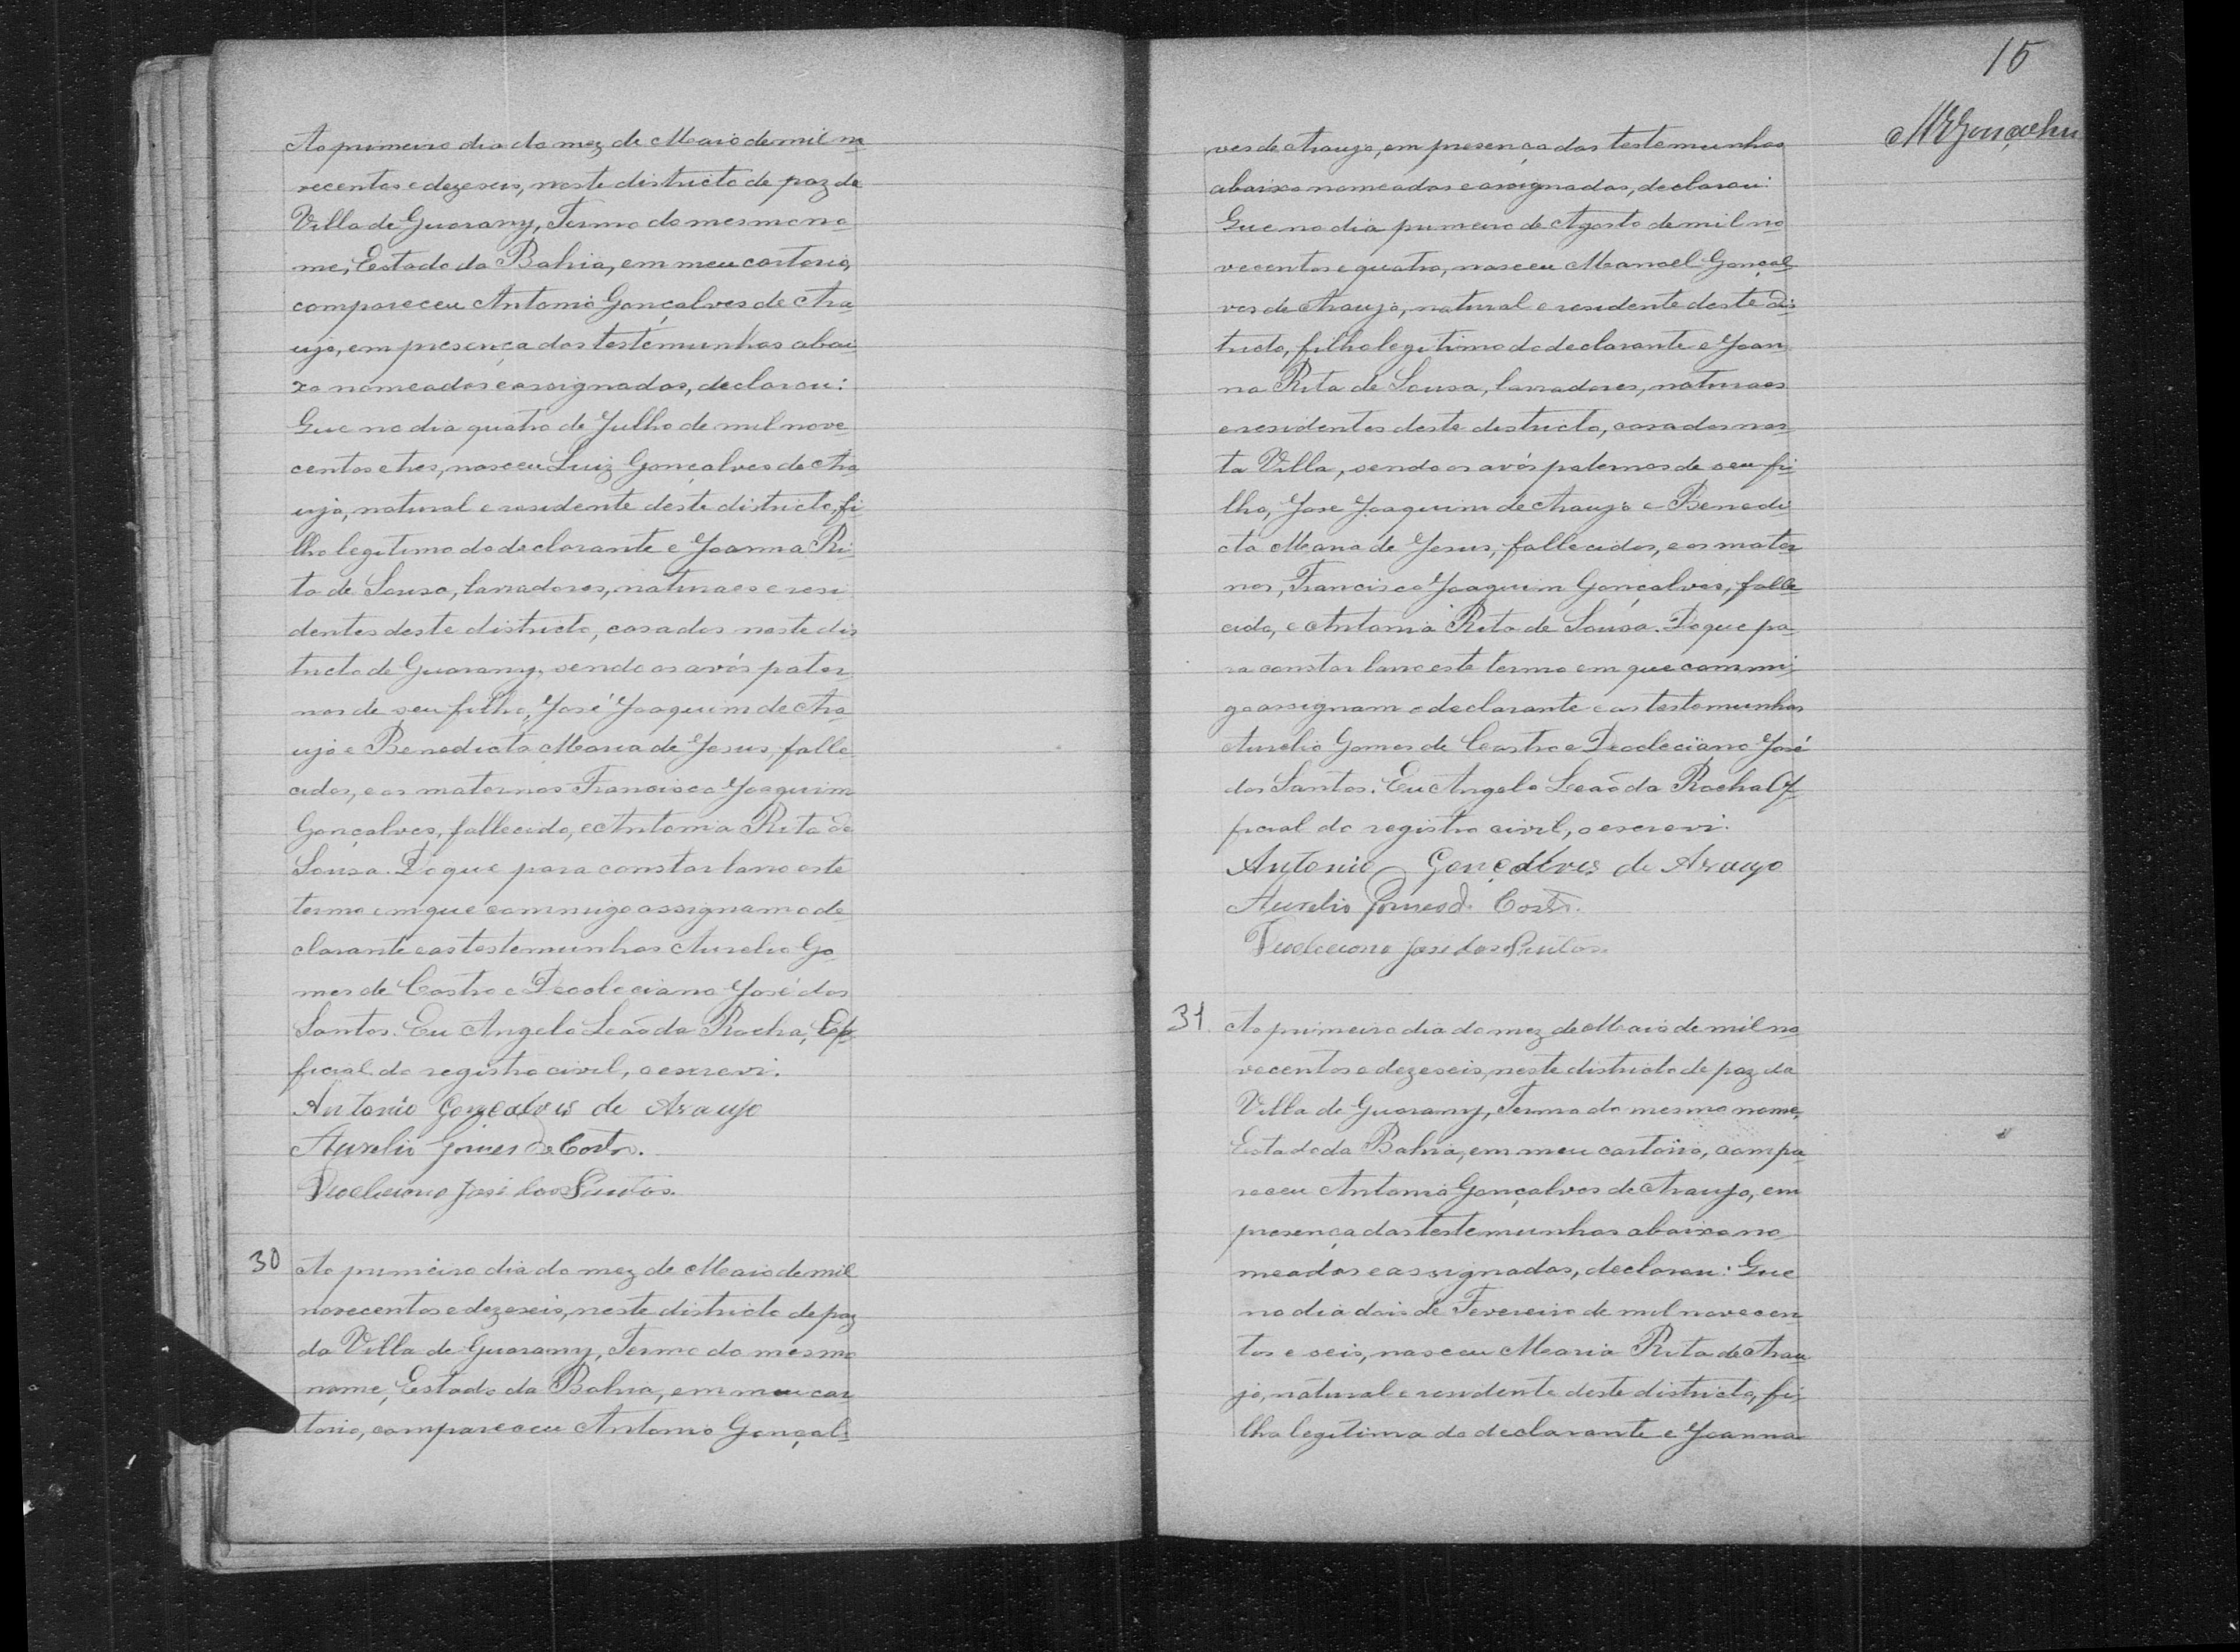 Ao primeiro dia do mez de Maio de mil no
vecentos e dezeseis, neste districto de paz da
Villa de Guarany, Termo do mesmo no
me, Estado da Bahia, em meu cartorio,
compareceu Antonio Gonçalves de Ara
ujo, em presença das testemunhas abai
xo nomeadas e assignadas, declarou:
Que no dia quatro de Julho de mil nove
centos e tres, nasceu Luiz Gonçalves de Ara
ujo, natural e residente deste districto, fi
lho legitimo do declarante e Joanna Ri
ta de Sousa, lavradores, naturaes e resi
dentes deste districto, casados neste dis
tricto de Guarany, sendo os avós pater
nos de seu filho, José Joaquim de Ara
ujo e Benedicta Maria de Jesus, falle
cidos, e os maternos Francisco Joaquim
Gonçalves, fallecido, e Antonia Rita de
Sousa. Do que para constar lavro este
termo em que commigo assignam o de
clarante e as testemunhas Aurelio Go
mes de Castro e Deocleciano José dos
Santos. Eu Angelo Leão da Rocha, Of
ficial do registro civil, o escrevi.
Antonio Gonçalves de Araujo
Aurelio Gomes de Castro.
Deocleciano José dos Santos.
30 Ao primeiro dia do mez de Maio de mil
novecentos e dezeseis, neste districto de paz
da Villa de Guarany, Termo do mesmo
nome, Estado da Bahia, em meu car
torio, compareceu Antonio Gonçal-
15
MGonçalves
ves de Araujo, em presença das testemunhas
abaixo nomeadas e assignadas, declarou:
Que no dia primeiro de Agosto de mil no
vecentos e quatro, nasceu Manoel Gonçal
ves de Araujo, natural e residente deste dis
tricto, filho legitimo do declarante e Joan
na Rita de Sousa, lavradores, naturaes
e residentes deste districto, casados nes
ta Villa, sendo os avós paternos de seu fi
lho, Jose Joaquim de Araujo e Benedi
cta Maria de Jesus, fallecidos, e os mater
nos, Francisco Joaquim Gonçalves, falle
cido, e Antonia Rita de Sousa. Do que pa
ra constar lavro este termo em que commi
go assignam o declarante e as testemunhas
Aurelio Gomes de Castro e Deocleciano José
dos Santos. Eu Angelo Leão da Rocha Of
ficial do registro civil, o escrevi.
Antonio Gonçalves de Araujo
Aurelio Gomes de Castro.
Deocleciano José dos Santos.
31. Ao primeiro dia do mez de Maio de mil no
vecentos e dezeseis, neste districto de paz da
Villa de Guarany, Termo do mesmo nome,
Estado da Bahia, em meu cartorio, compa
receu Antonio Gonçalves de Araujo, em
presença das testemunhas abaixo no
meadas e assignadas, declarou: Que
no dia dois de Fevereiro de mil novecen
tos e seis, nasceu Maria Rita de Arau
jo, natural e residente deste districto, fi
lha legitima do declarante e Joanna